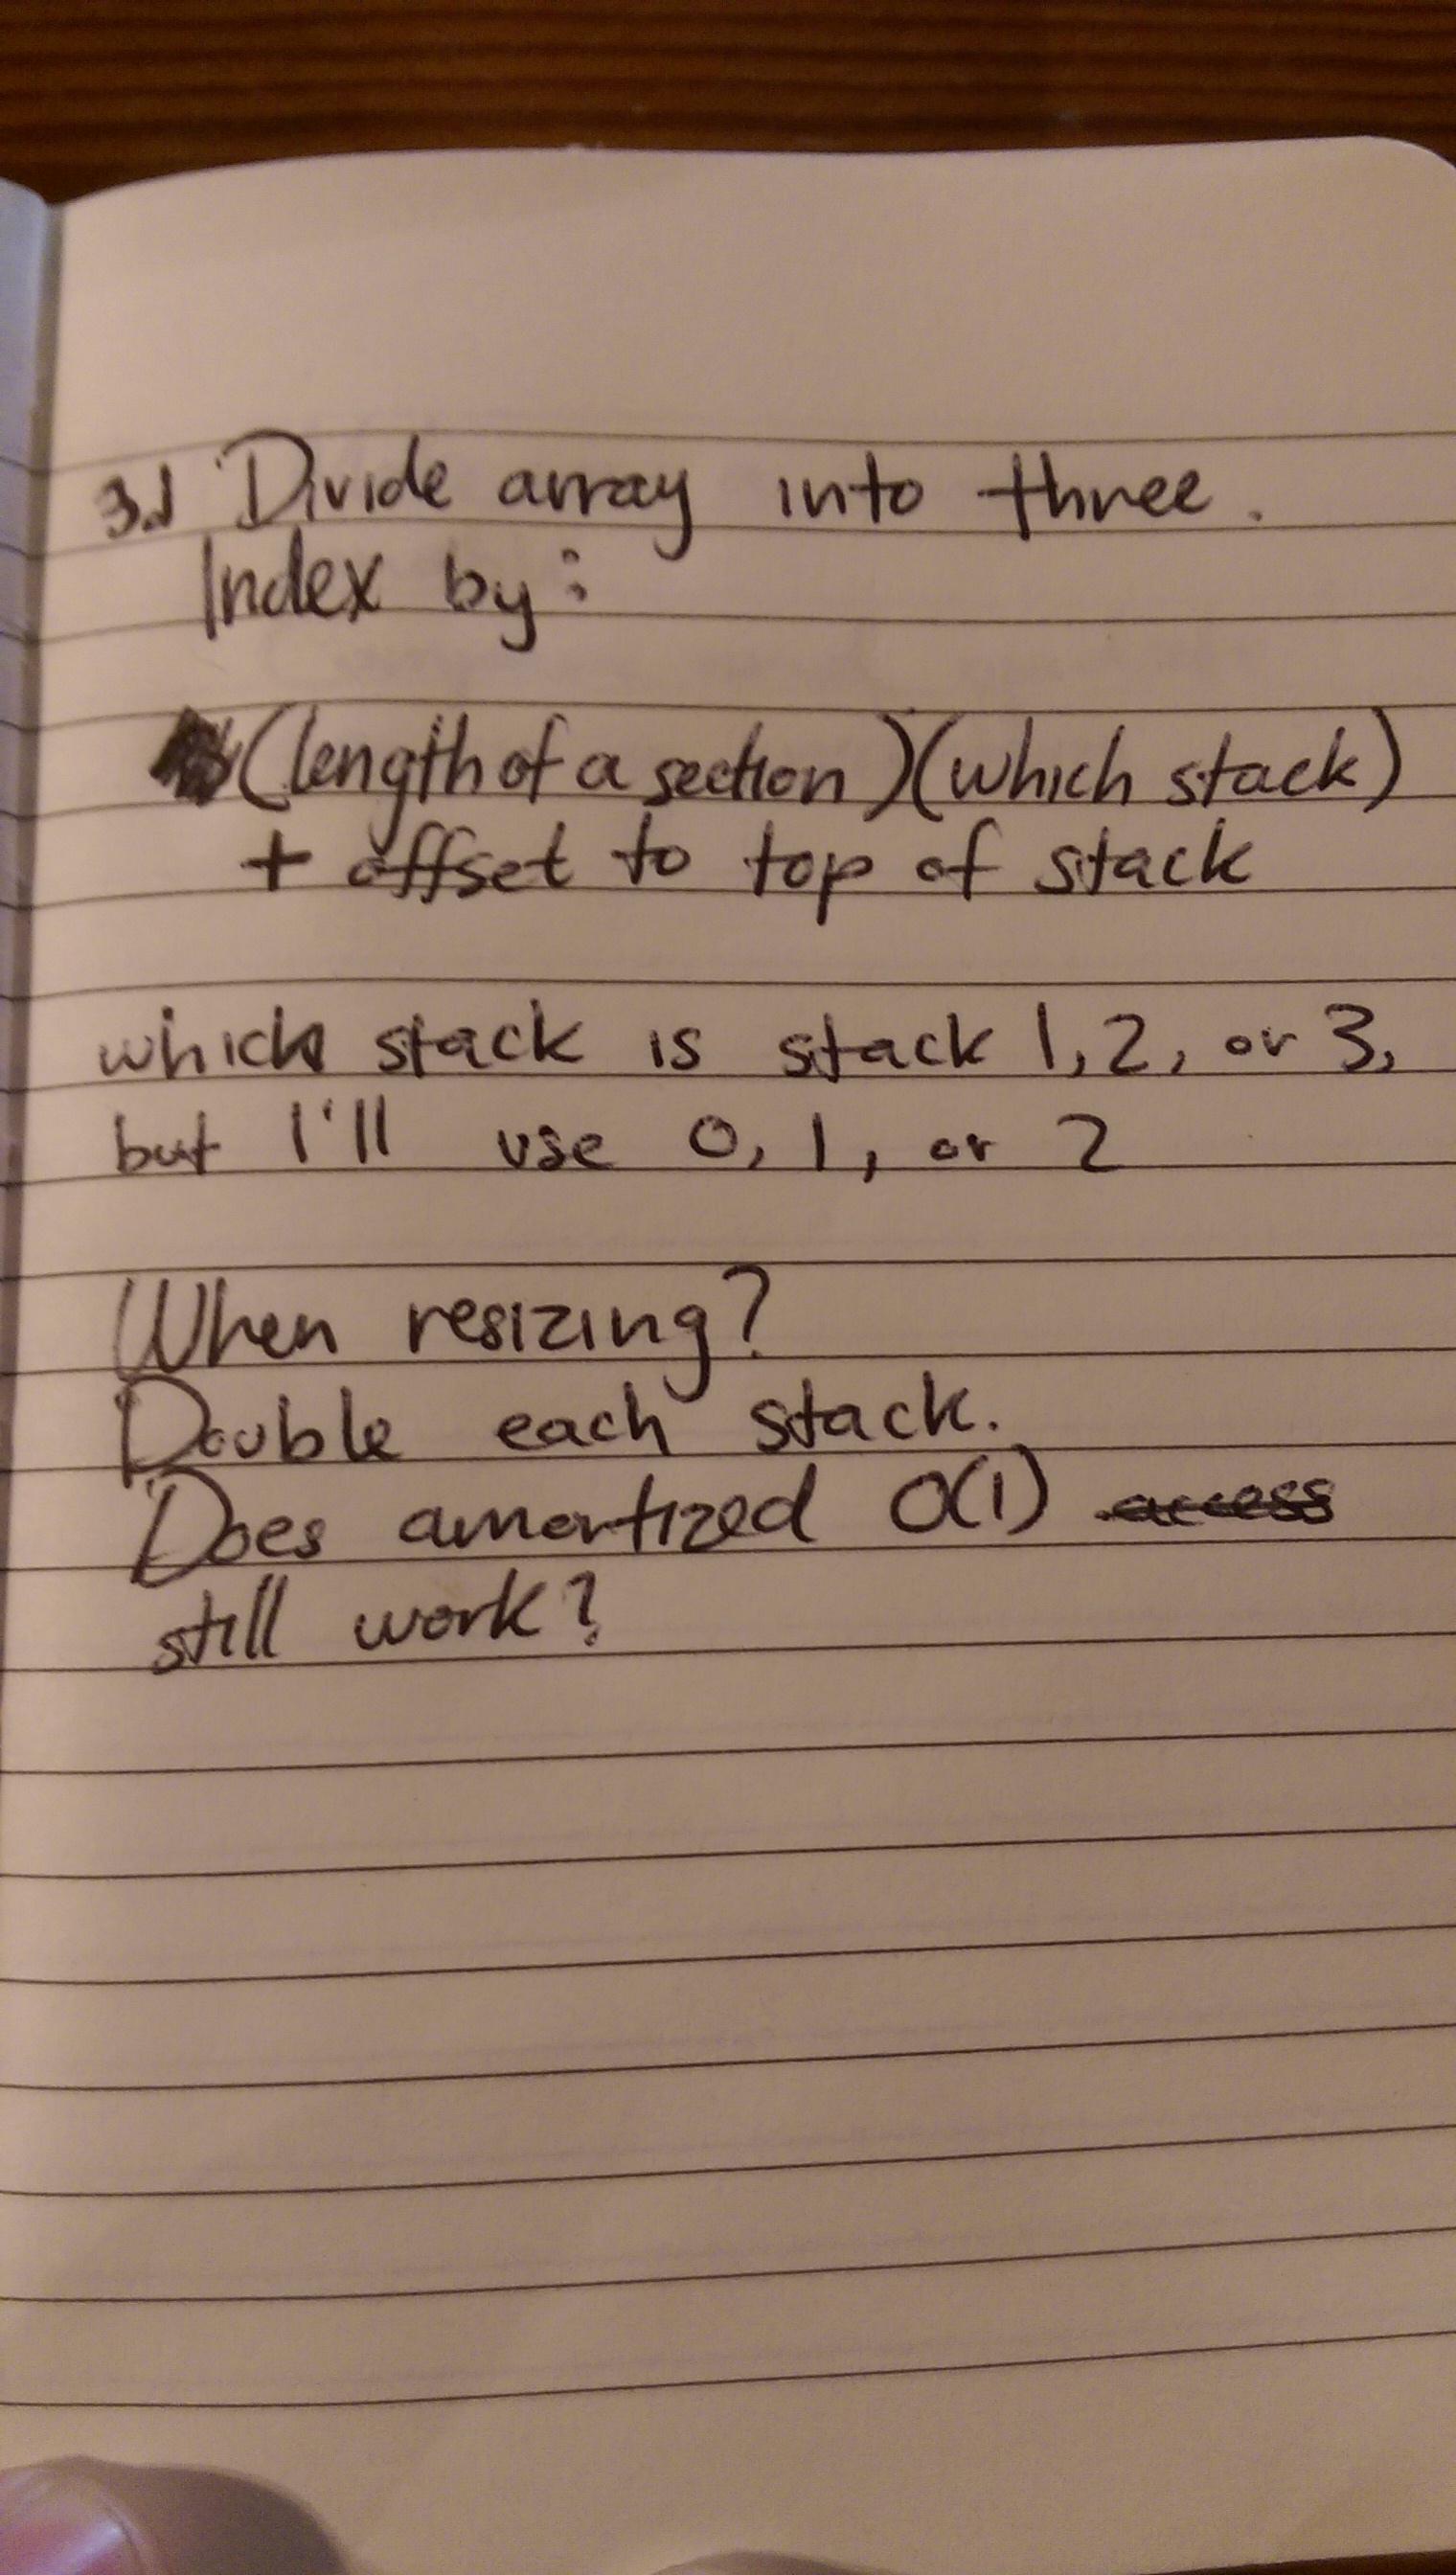 3.1 Divide array into three.
Index by:
(length of a section)(which stack)
+ offset to top of stack
which stack is stack 1, 2, or 3,
but I'll use 0, 1, or 2
When resizing?
Double each stack.
Does amortized O(1) access
still work?